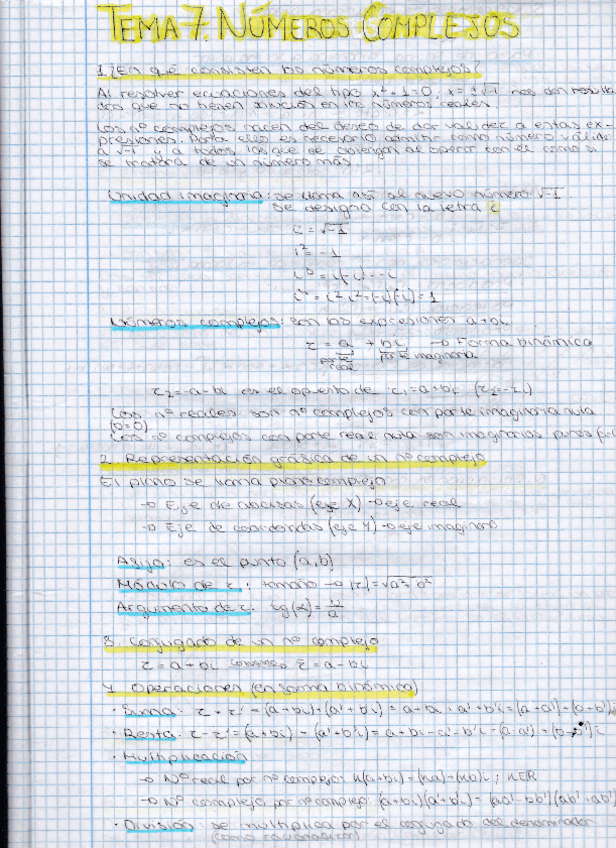 TEMA 7. NÚMEROS COMPLEJOS
1. ¿En qué consisten los números complejos?
Al resolver ecuaciones del tipo x²+1=0, x=±√-1 nos dan resulta
dos que no tienen solución en los números reales.
Los nº complejos nacen del deseo de dar validez a estas ex-
presiones. Para ello es necesario admitir como número válido
a √-1 y a todos los que se obtengan al operar con él como si
se tratara de un número más.
Unidad imaginaria: se llama así al nuevo número √-1
Se designa con la letra i
i = √-1
i² = -1
i³ = i(-1) = -i
i⁴ = i² i² = (-1)(-1) = 1
Números complejos: son las expresiones a+bi
z = a + bi → Forma binómica
parte real parte imaginaria
z₂=a-bi es el opuesto de z₁=a+bi (z₂=-z₁)
Los nº reales son nº complejos con parte imaginaria nula
(b=0)
Los nº complejos con parte real nula son imaginarios puros
2. Representación gráfica de un nº complejo
El plano se llama plano complejo
→ Eje de abcisas (eje X) → eje real
→ Eje de coordenadas (eje Y) → eje imaginario
Afijo: es el punto (a,b)
Módulo de z: tamaño → |z| = √a²+b²
Argumento de z: tg(α) = b/a
3. Conjugado de un nº complejo
z = a+bi conjugado z̄ = a-bi
4. Operaciones (en forma binómica)
· Suma: z+z' = (a+bi)+(a'+b'i) = a+bi+a'+b'i = (a+a')+(b+b')i
· Resta: z-z' = (a+bi)-(a'+b'i) = a+bi-a'-b'i = (a-a')+(b-b')i
· Multiplicación
→ Nº real por nº complejo: k(a+bi) = (ka)+(kb)i ; k∈R
→ Nº complejo por nº complejo: (a+bi)(a'+b'i) = (aa'-bb')(ab'+ab'
· División: se multiplica por el conjugado del denominador
(como racionalizar)